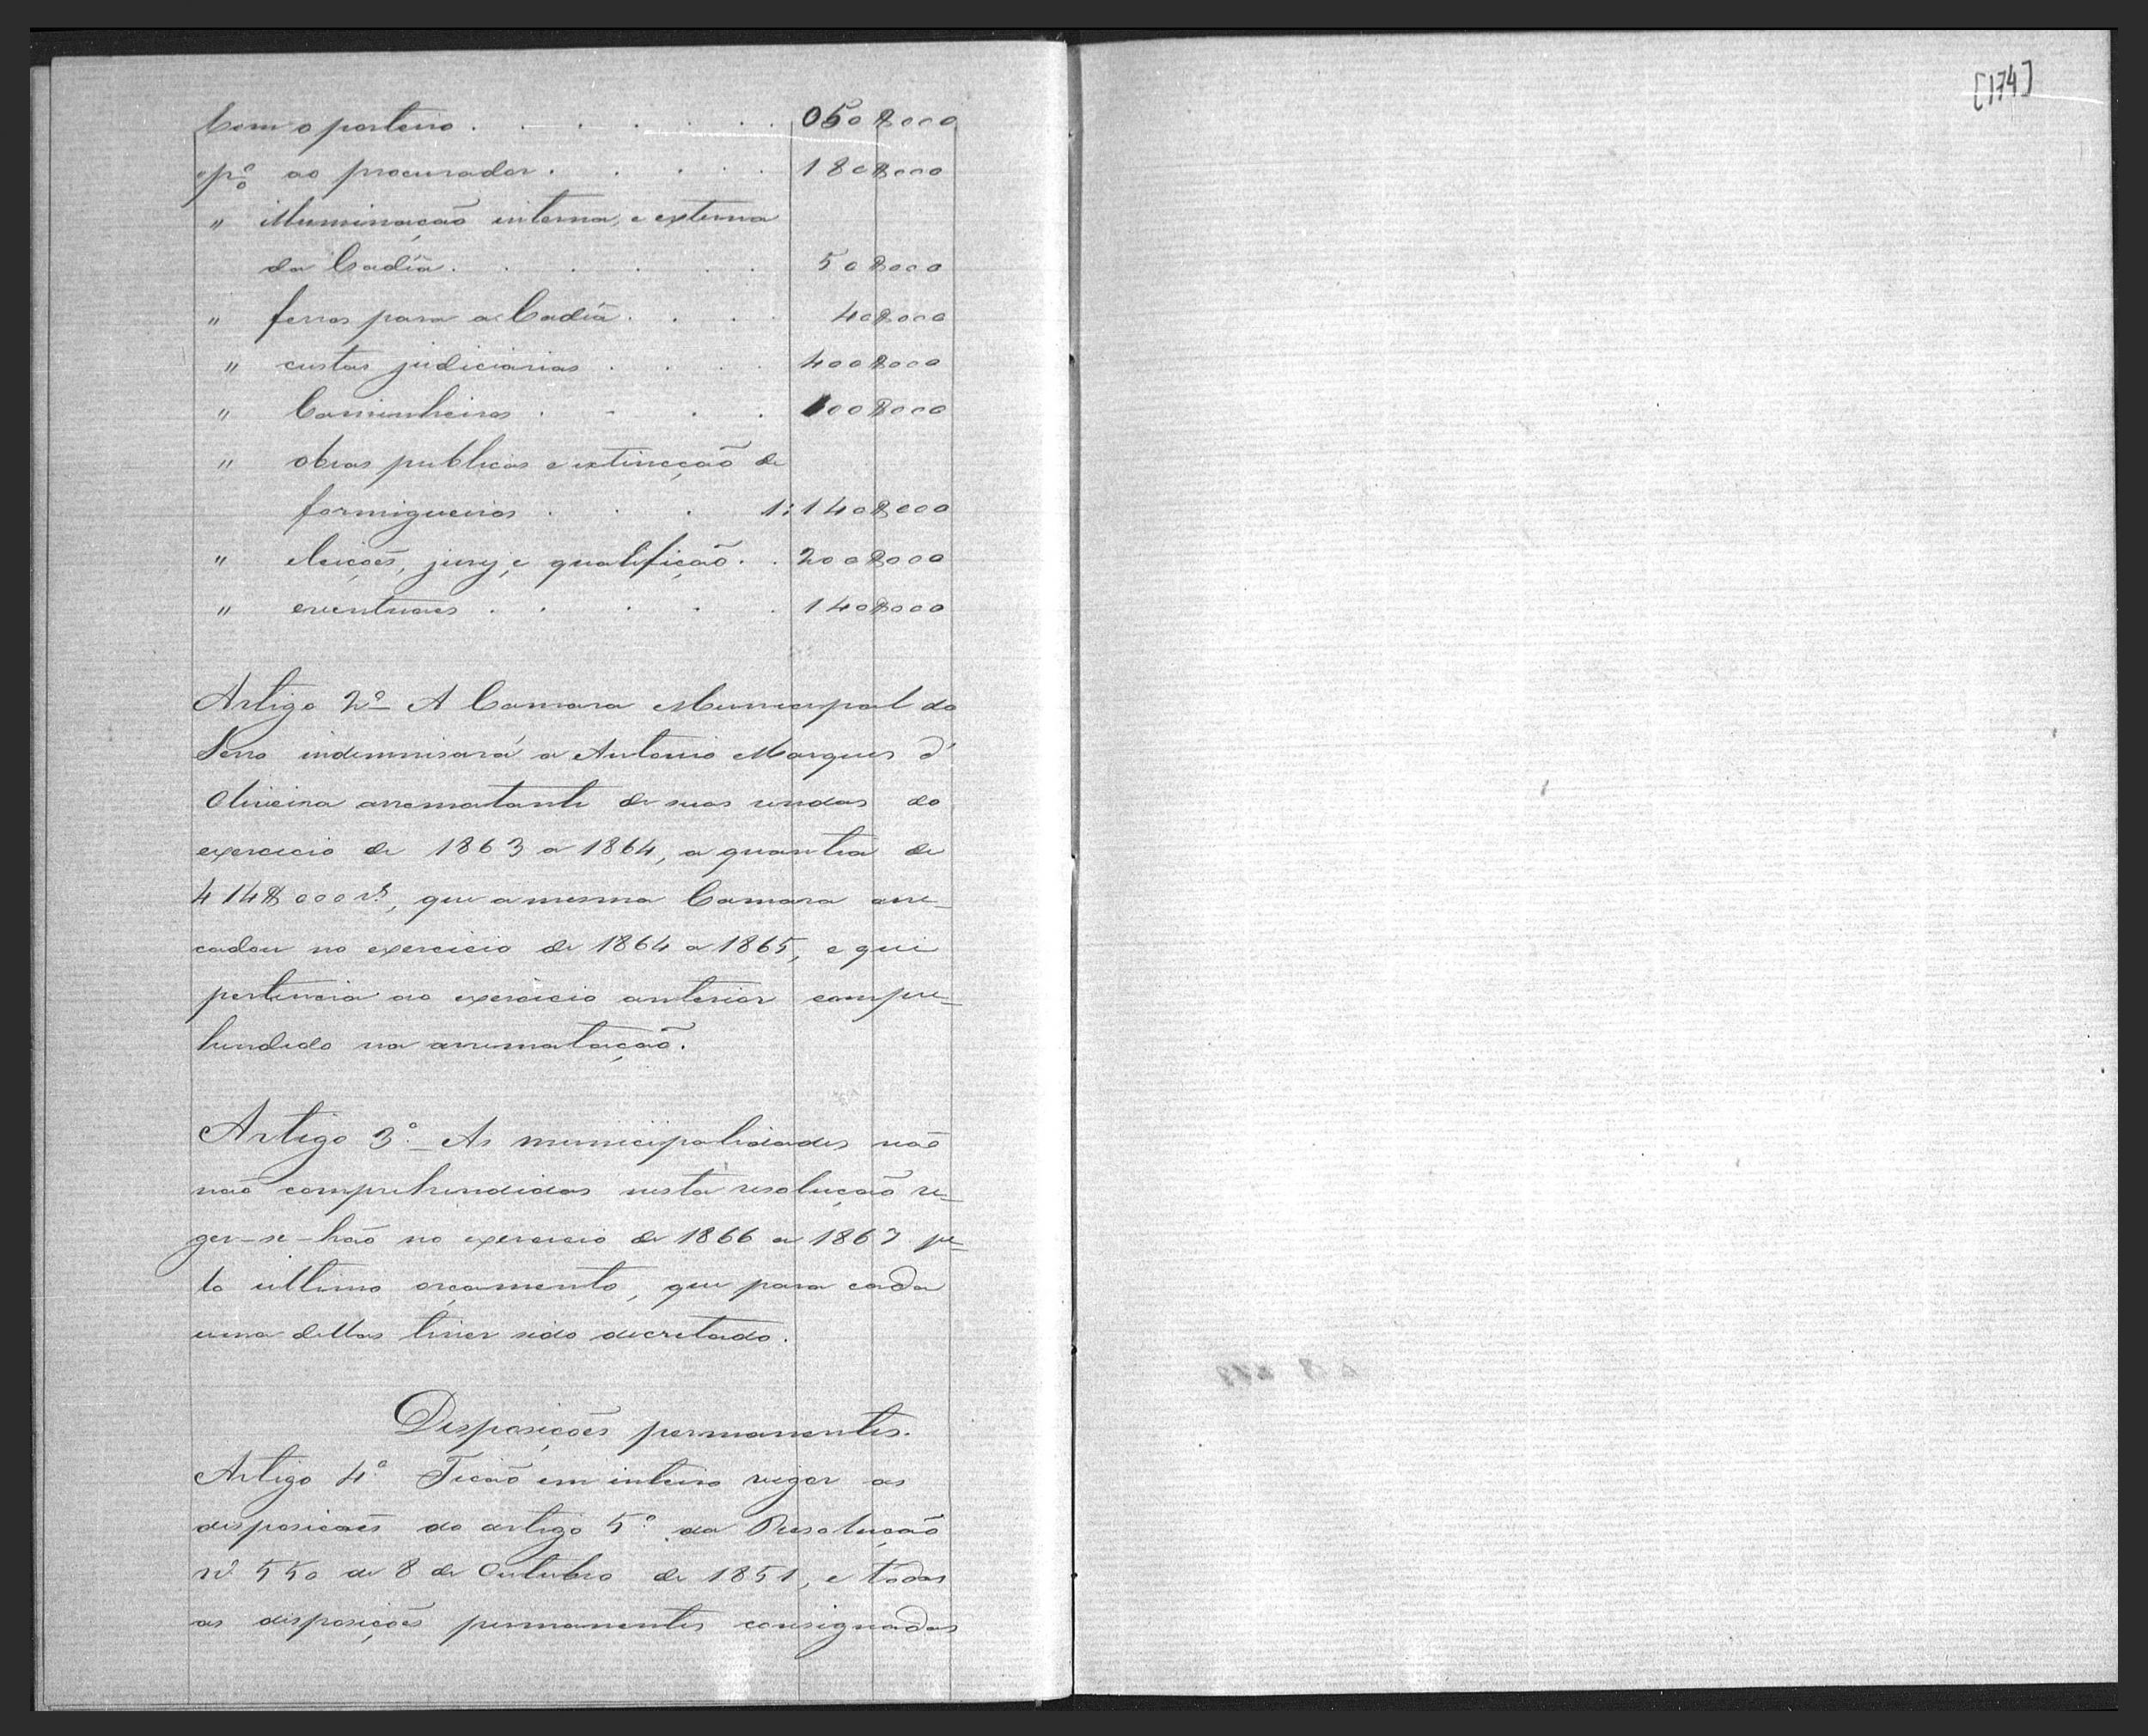 Com o porteiro . . . . . . 050$000
" p.º ao procurador . . . . . 180$000
" illuminação interna, e externa
da Cadêa . . . . . . 50$000
" ferros para a Cadêa . . . 40$000
" custas judiciarias . . . . 400$000
" Caminheiros . . . . 100$000
" obras publicas e extincção de
formigueiros . . . 1:140$000
" eleições, jury, e qualifição . . 200$000
" eventuaes . . . . . 140$000
Artigo 2º A Camara Municipal do
Serro indemnisará a Antonio Marques d'
Oliveira arrematante de suas rendas do
exercicio de 1863 a 1864, a quantia de
414$000 rs, que a mesma Camara arre-
cadou no exercicio de 1864 a 1865, e que
pertencia ao exercicio anterior compre-
hendido na arrematação.
Artigo 3º As municipalidades não
não comprehendidas nesta resolução re-
ger-se-hão no exercicio de 1866 a 1867 pe-
lo ultimo orçamento, que para cada
uma dellas tiver sido decretado.
Disposições permanentes.
Artigo 4º Ficão em inteiro vigor as
disposicões do artigo 5º da Resolução
nº 550 de 8 de Outubro de 1851, e todas
as disposições permanentes consignadas
[174]